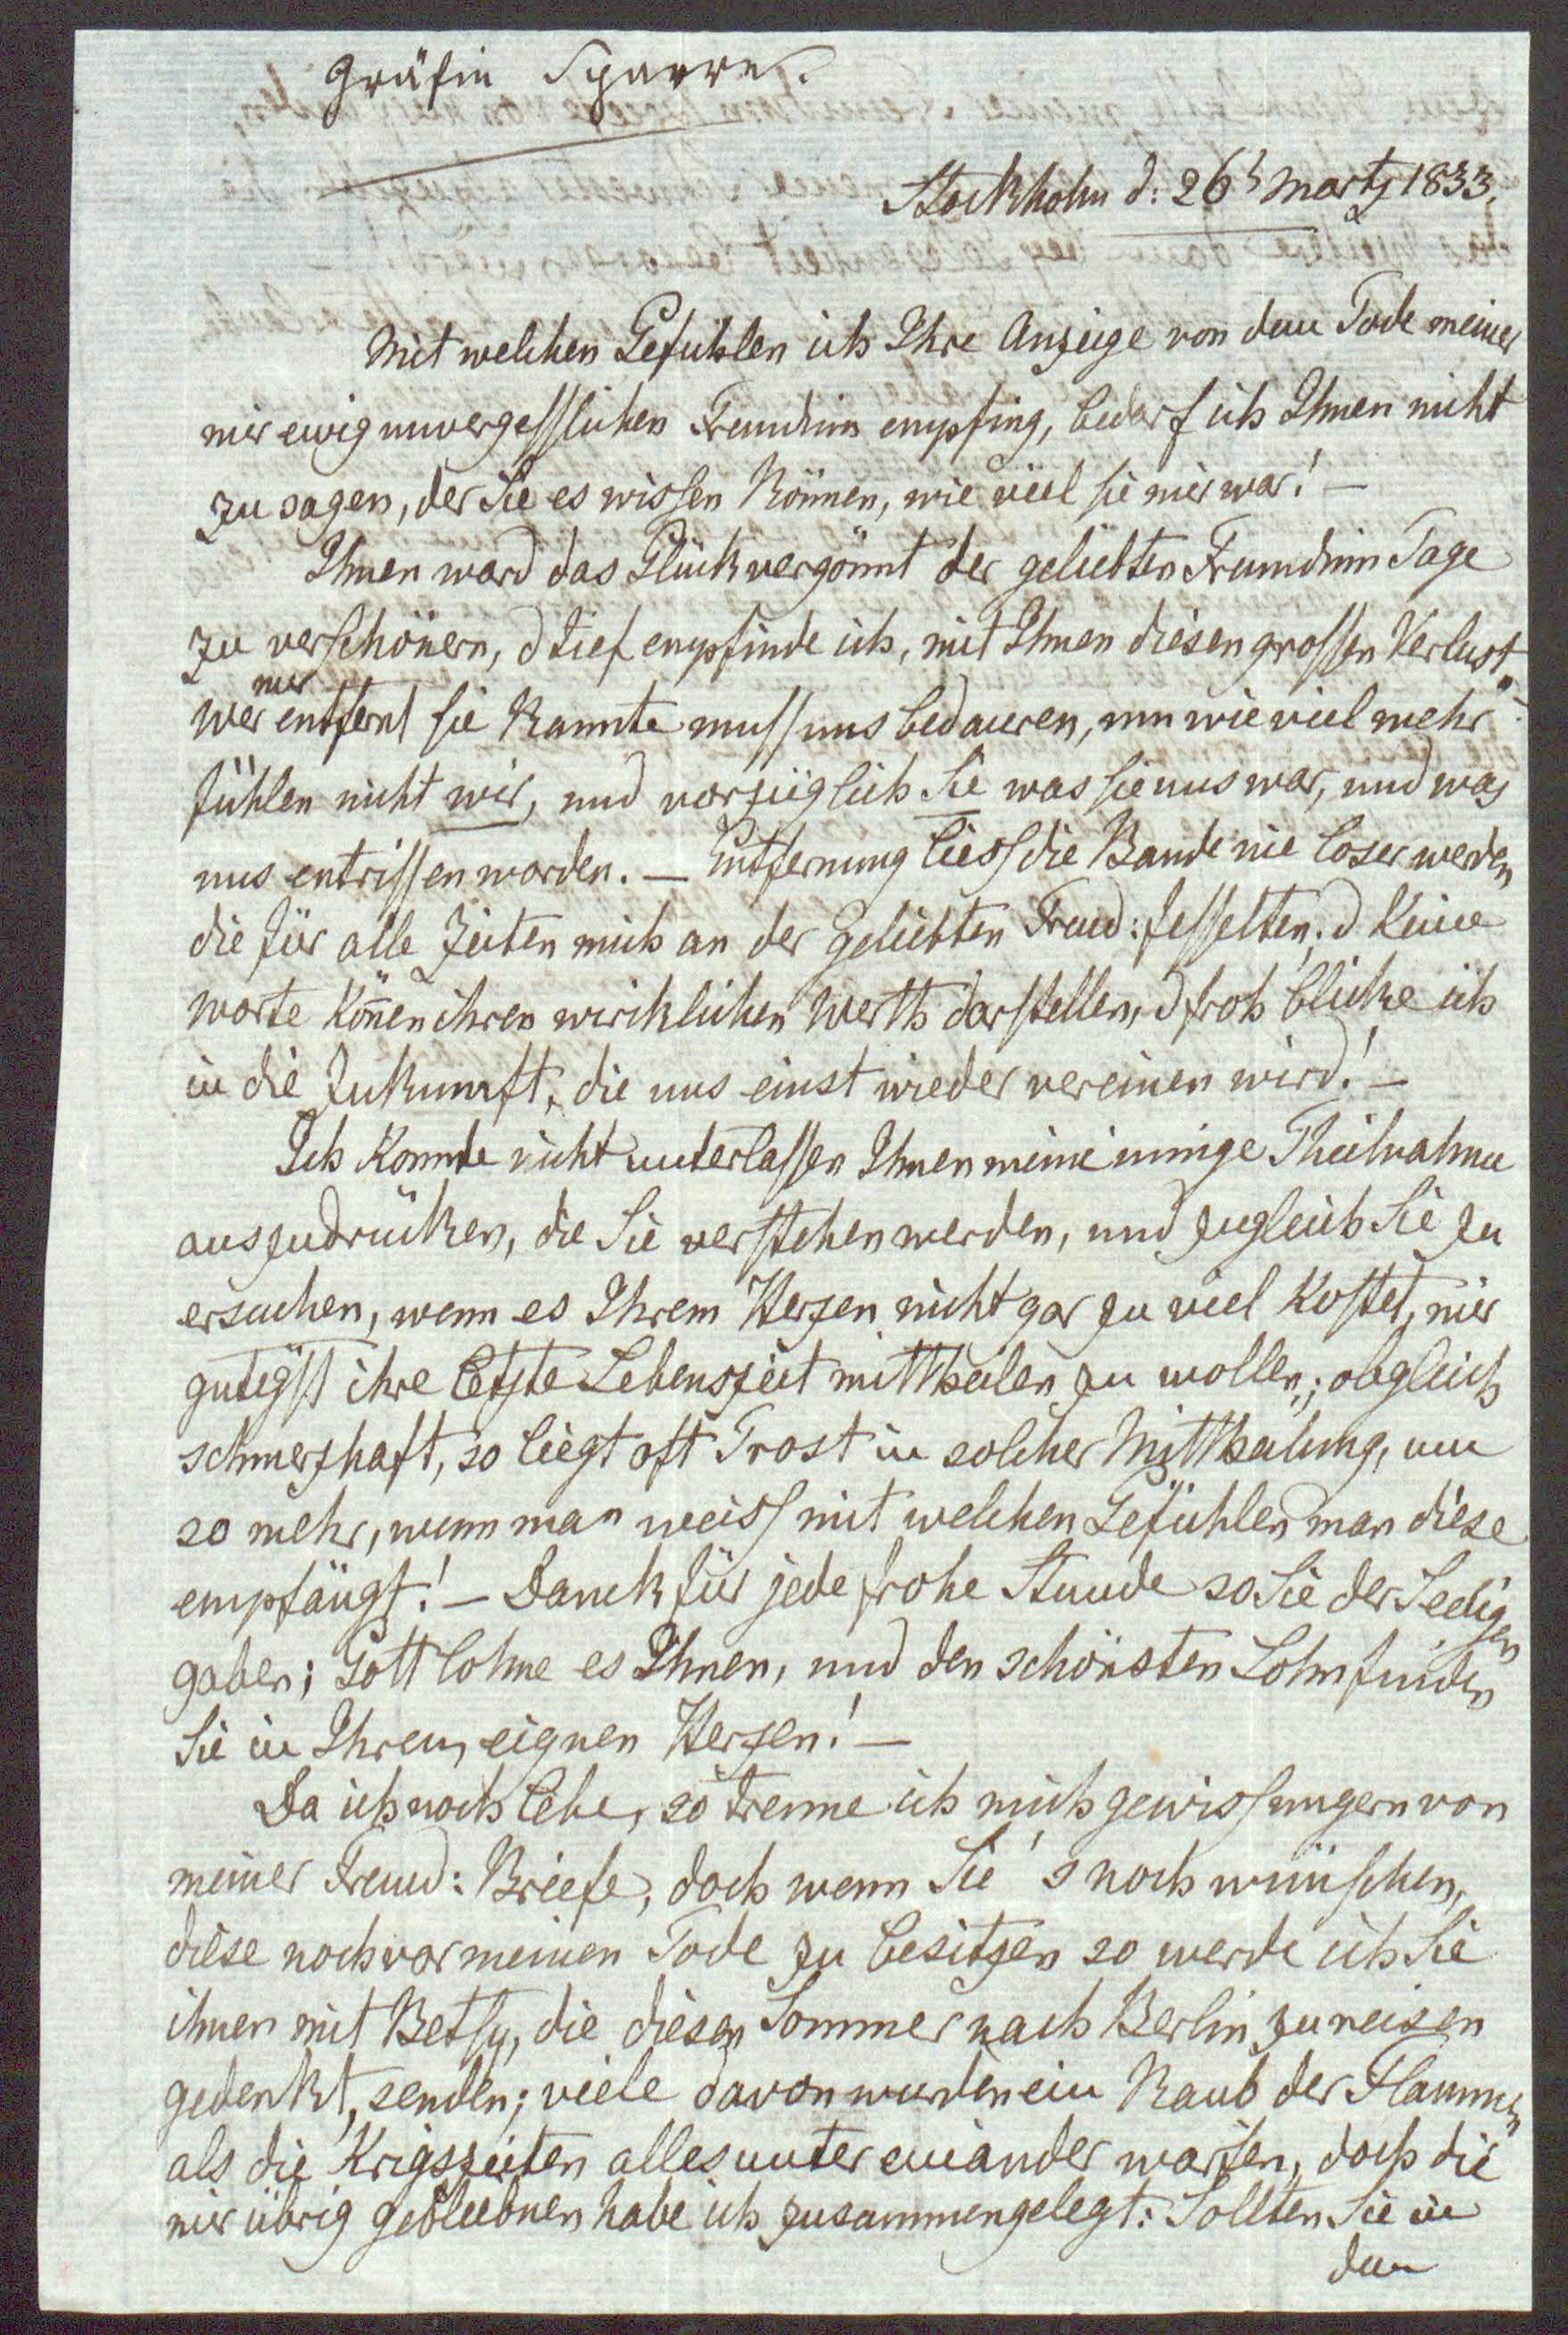 Gräfin Sparre.
Stockholm d: 26t Martz 1833.
Mit welchen Gefühlen ich Ihre Anzeige von dem Tode meiner
mir ewig unvergesslichen Freundinn empfing, bedarf ich Ihnen nicht
zu sagen, der Sie es wissen können, wie viel sie mir war! —
Ihnen ward das Glück vergönnt der geliebten Freundinn Tage
zu verschönern, d tief empfinde ich, mit Ihnen diesen grossen Verlust.
nur
Wer entfernt sie kannte muss uns bedauren, um wie viel mehr
fühlen nicht wir, und vorzüglich Sie was sie uns war, und was
uns entrissen worden. — Entfernung liess die Bande nie loser werden
die für alle Zeiten mich an der geliebten Freud: fesselten; d keine
Worte könen ihren wirklichen Werth darstellen, d froh blicke ich
in die Zukunft, die uns einst wieder vereinen wird! —
Ich konnte nicht unterlassen Ihnen meine innige Theilnahme
auszudrücken, die Sie verstehen werden, und zugleich Sie zu
ersuchen, wenn es Ihrem Herzen nicht gar zu viel kostet, mir
gutigst ihre letzte Lebenszeit mittheilen zu wollen; obgleich
schmerzhaft, so liegt oft Trost in solcher Mittheilung, um
so mehr, wenn man weiss mit welchen Gefühlen man diese
empfängt! — Danck für jede frohe Stunde so Sie der Seeligen
gaben; Gott lohne es Ihnen, und den schönsten Lohn finden
Sie in Ihrem eignen Herzen! —
Da ich noch lebe, so trenne ich mich gewiss ungern von
meiner Freud: Briefe, doch wenn Sie's noch wünschen,
diese noch vor meinen Tode zu besitzen so werde ich Sie
ihnen mit Betsy, die diesen Sommer nach Berlin zu reisen
gedenkt, senden; viele davon wurden ein Raub der Flammen
als die Krigszeiten alles unter einander warfen, doch die
mir übrig gebliebnen habe ich zusammengelegt: Sollten Sie in
dem